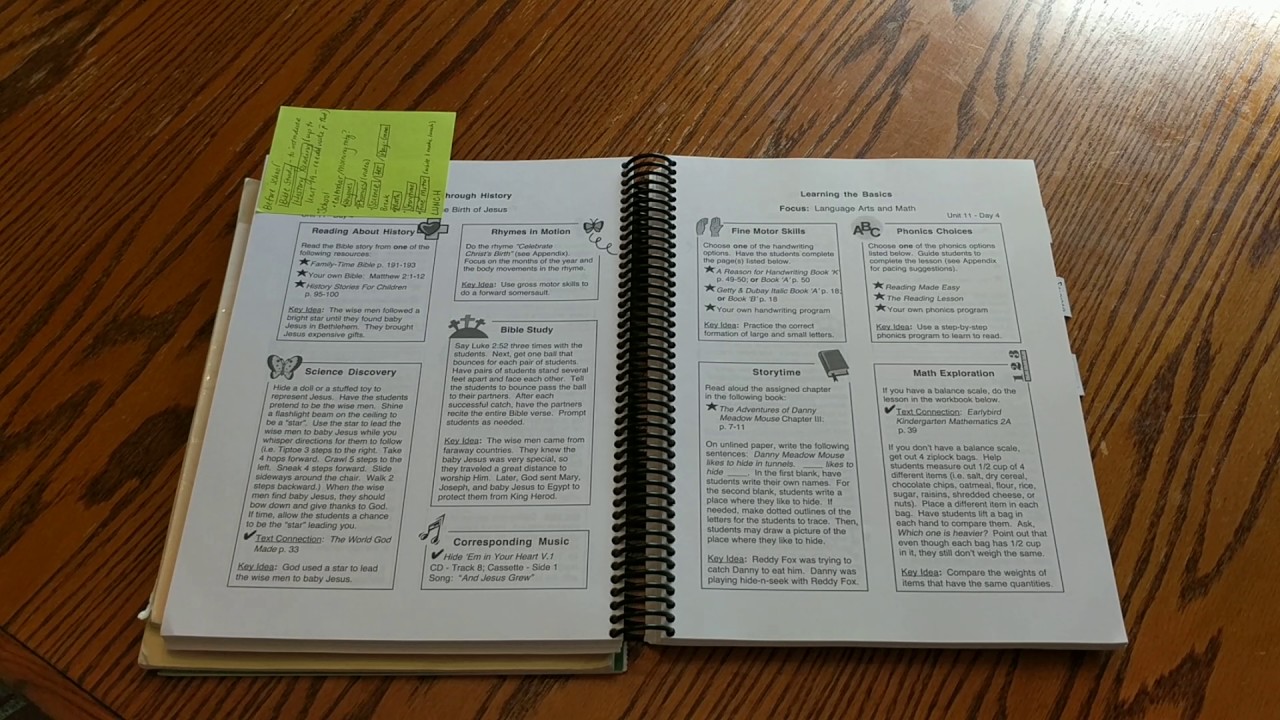 Before School
Bible Study - to introduce
History Reading
School
Calendar/morning
Science
Break
Storytime
LUNCH
hrough History
e Birth of Jesus
Reading About History
Read the Bible story from one of the
following resources:
★ Family-Time Bible p. 191-193
★ Your own Bible: Matthew 2:1-12
★ History Stories For Children
p. 95-100
Key Idea: The wise men followed a
bright star until they found baby
Jesus in Bethlehem. They brought
Jesus expensive gifts.
Rhymes In Motion
Do the rhyme "Celebrate
Christ's Birth" (see Appendix).
Focus on the months of the year and
the body movements in the rhyme.
Key Idea: Use gross motor skills to
do a forward somersault.
Science Discovery
Hide a doll or a stuffed toy to
represent Jesus. Have the students
pretend to be the wise men. Shine
a flashlight beam on the ceiling to
be a "star". Use the star to lead the
wise men to baby Jesus while you
whisper directions for them to follow
(i.e. Tiptoe 3 steps to the right. Take
4 hops forward. Crawl 5 steps to the
left. Sneak 4 steps forward. Slide
sideways around the chair. Walk 2
steps backward.) When the wise
men find baby Jesus, they should
bow down and give thanks to God.
If time, allow the students a chance
to be the "star" leading you.
✔ Text Connection: The World God
Made p. 33
Key Idea: God used a star to lead
the wise men to baby Jesus.
Bible Study
Say Luke 2:52 three times with the
students. Next, get one ball that
bounces for each pair of students.
Have pairs of students stand several
feet apart and face each other. Tell
the students to bounce pass the ball
to their partners. After each
successful catch, have the partners
recite the entire Bible verse. Prompt
students as needed.
Key Idea: The wise men came from
faraway countries. They knew the
baby Jesus was very special, so
they traveled a great distance to
worship Him. Later, God sent Mary,
Joseph, and baby Jesus to Egypt to
protect them from King Herod.
Corresponding Music
✔ Hide 'Em in Your Heart V.1
CD - Track 8; Cassette - Side 1
Song: "And Jesus Grew"
Learning the Basics
Focus: Language Arts and Math
Unit 11 - Day 4
Fine Motor Skills
Choose one of the handwriting
options. Have the students complete
the page(s) listed below.
★ A Reason for Handwriting Book 'K'
p. 49-50; or Book 'A' p. 50
★ Getty & Dubay Italic Book 'A' p. 18;
or Book 'B' p. 18
★ Your own handwriting program
Key Idea: Practice the correct
formation of large and small letters.
ABC
Phonics Choices
Choose one of the phonics options
listed below. Guide students to
complete the lesson (see Appendix
for pacing suggestions).
★ Reading Made Easy
★ The Reading Lesson
★ Your own phonics program
Key Idea: Use a step-by-step
phonics program to learn to read.
Storytime
Read aloud the assigned chapter
in the following book:
★ The Adventures of Danny
Meadow Mouse Chapter III.
p. 7-11
On unlined paper, write the following
sentences: Danny Meadow Mouse
likes to hide in tunnels. ____ likes to
hide ____. In the first blank, have
students write their own names. For
the second blank, students write a
place where they like to hide. If
needed, make dotted outlines of the
letters for the students to trace. Then,
students may draw a picture of the
place where they like to hide.
Key Idea: Reddy Fox was trying to
catch Danny to eat him. Danny was
playing hide-n-seek with Reddy Fox.
Math Exploration
1 2 3
If you have a balance scale, do the
lesson in the workbook below.
✔ Text Connection: Earlybird
Kindergarten Mathematics 2A
p. 39
If you don't have a balance scale,
get out 4 ziplock bags. Help
students measure out 1/2 cup of 4
different items (i.e. salt, dry cereal,
chocolate chips, oatmeal, flour, rice,
sugar, raisins, shredded cheese, or
nuts). Place a different item in each
bag. Have students lift a bag in
each hand to compare them. Ask,
Which one is heavier? Point out that
even though each bag has 1/2 cup
in it, they still don't weigh the same.
Key Idea: Compare the weights of
items that have the same quantities.